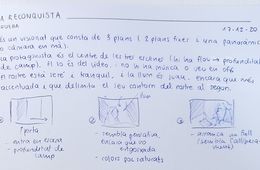 A RECONQUISTA
17-12-20
És un visionat que consta de 3 plans (2 plans fixes i una panoràmica
o càmera en mà).
protagonista és el centre de les tres escenes (hi ha flou → profunditat
de camp). Al so del vídeo, no hi ha música o veu en off.
rostre està serè i tranquil, i la llum és suau, encara que més
accentuada i que delimita el seu contorn del rostre al segon.
①
②
③
1 porta
- entra en escena
- profunditat de camp
- sembla pensativa
encara que no
- colors poc saturats
- arrenca un full
(sembla